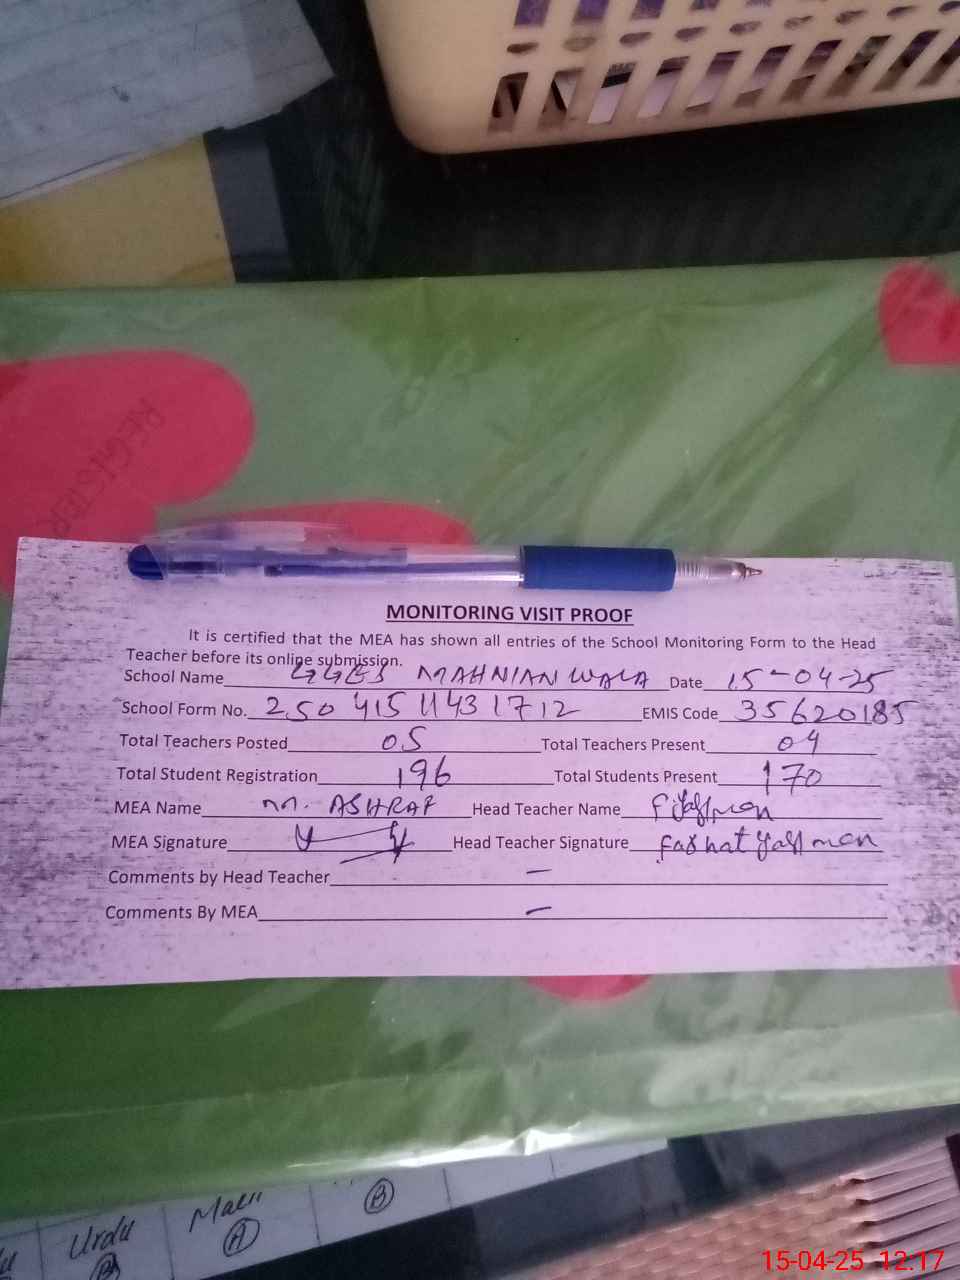 REGISTER
MONITORING VISIT PROOF
It is certified that the MEA has shown all entries of the School Monitoring Form to the Head
Teacher before its online submission.
School Name GGES MAHNIANWALA Date 15-04-25
School Form No. 250 415 1143 1712 EMIS Code 35620185
Total Teachers Posted 05 Total Teachers Present 04
Total Student Registration 196 Total Students Present 170
MEA Name M. ASHRAF Head Teacher Name
MEA Signature Head Teacher Signature
Comments by Head Teacher —
Comments By MEA —
Urdu
B
A
B
15-04-25 12.17